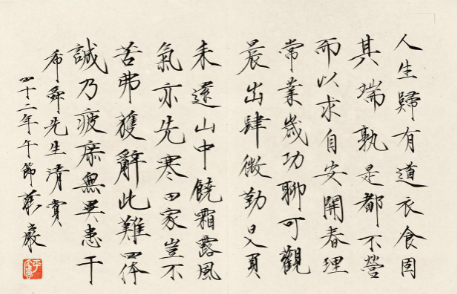 人生歸有道衣食固
其端孰是都不營
而以求自安開春理
常業歲功聊可觀
晨出肆微勤日入負
耒還山中饒霜露風
氣亦先寒田家豈不
苦弗獲辭此難四体
誠乃疲庶無異患干
希舜先生清賞
四十二年午節